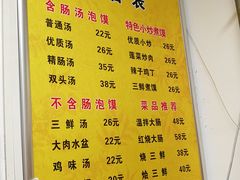 含肠汤泡馍
普通汤 22元
优质汤 26元
精肠汤 35元
双头汤 38元
不含肠泡馍
三鲜汤 26元
大肉水盆 22元
鸡味汤 22元
特色小炒煮馍
优质小炒 26元
莲菜炒肉 26元
辣子鸡丁 26元
三鲜煮馍 26元
菜品推荐
温拌大肠 58元
红烧大肠 58元
烧三鲜 38元
烩三鲜 38元